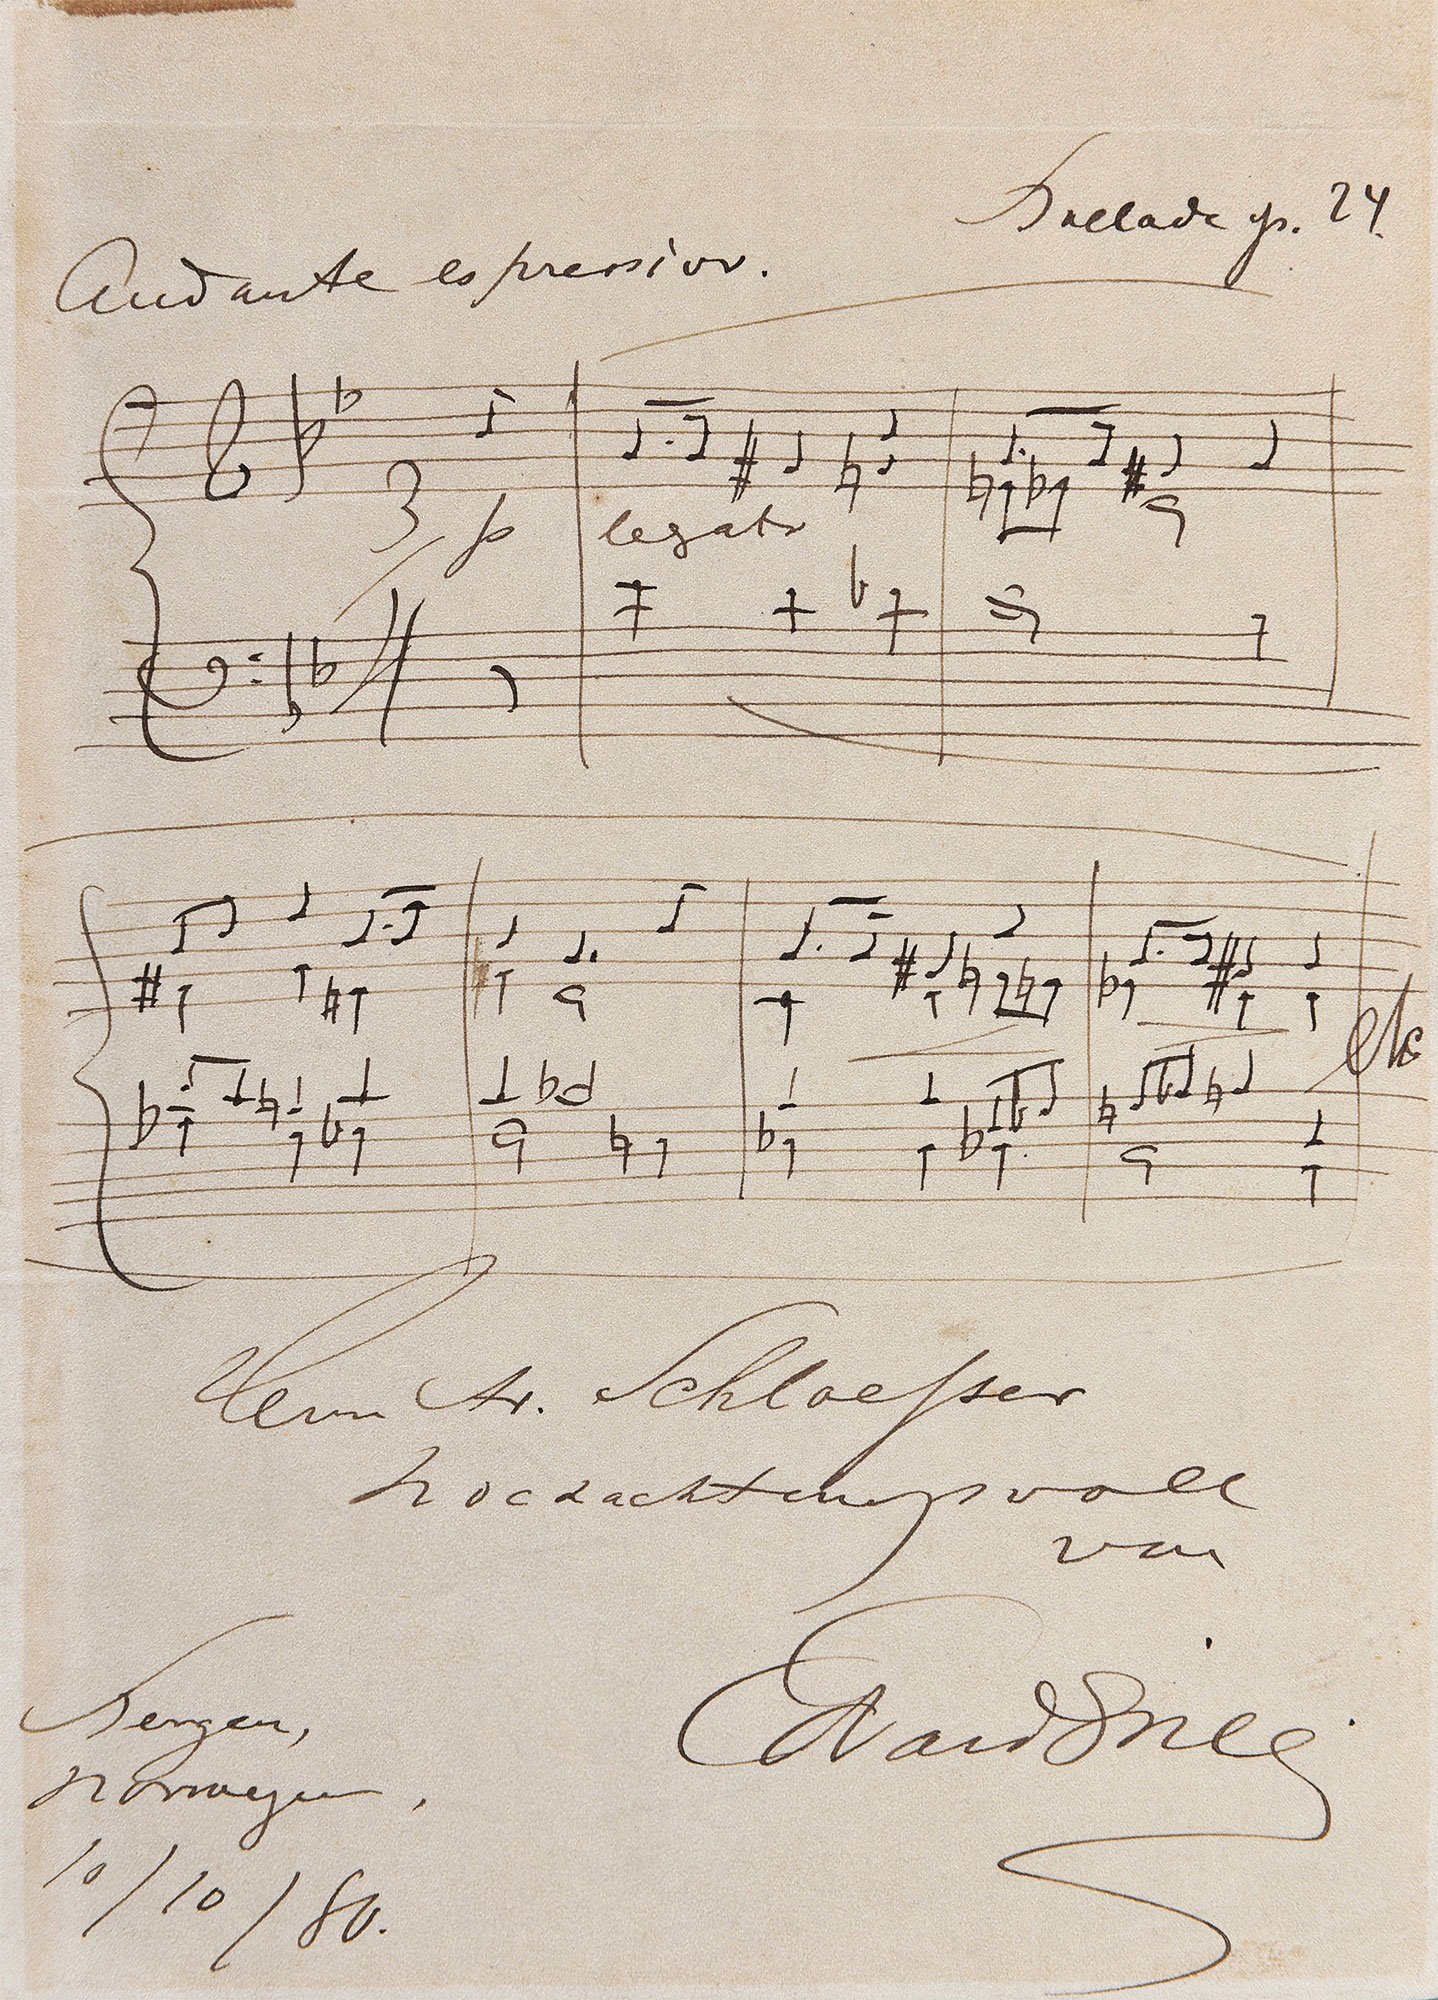 Ballade op. 24.
Andante espressivo.
3
4
p
legato
etc
Herrn Ar. Schloesser
hochachtungsvoll
von
Edvard Grieg
Bergen,
Norwegen,
10/10/80.